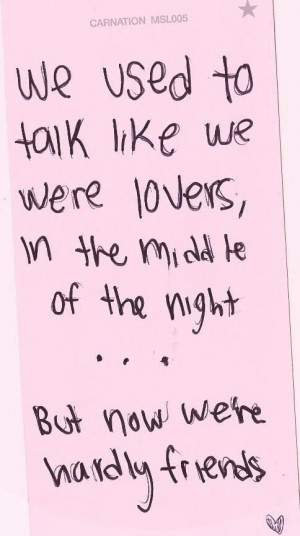 CARNATION MSL005
we used to
talk like we
were lovers,
in the middle
of the night
. . .
But now we're
hardly friends